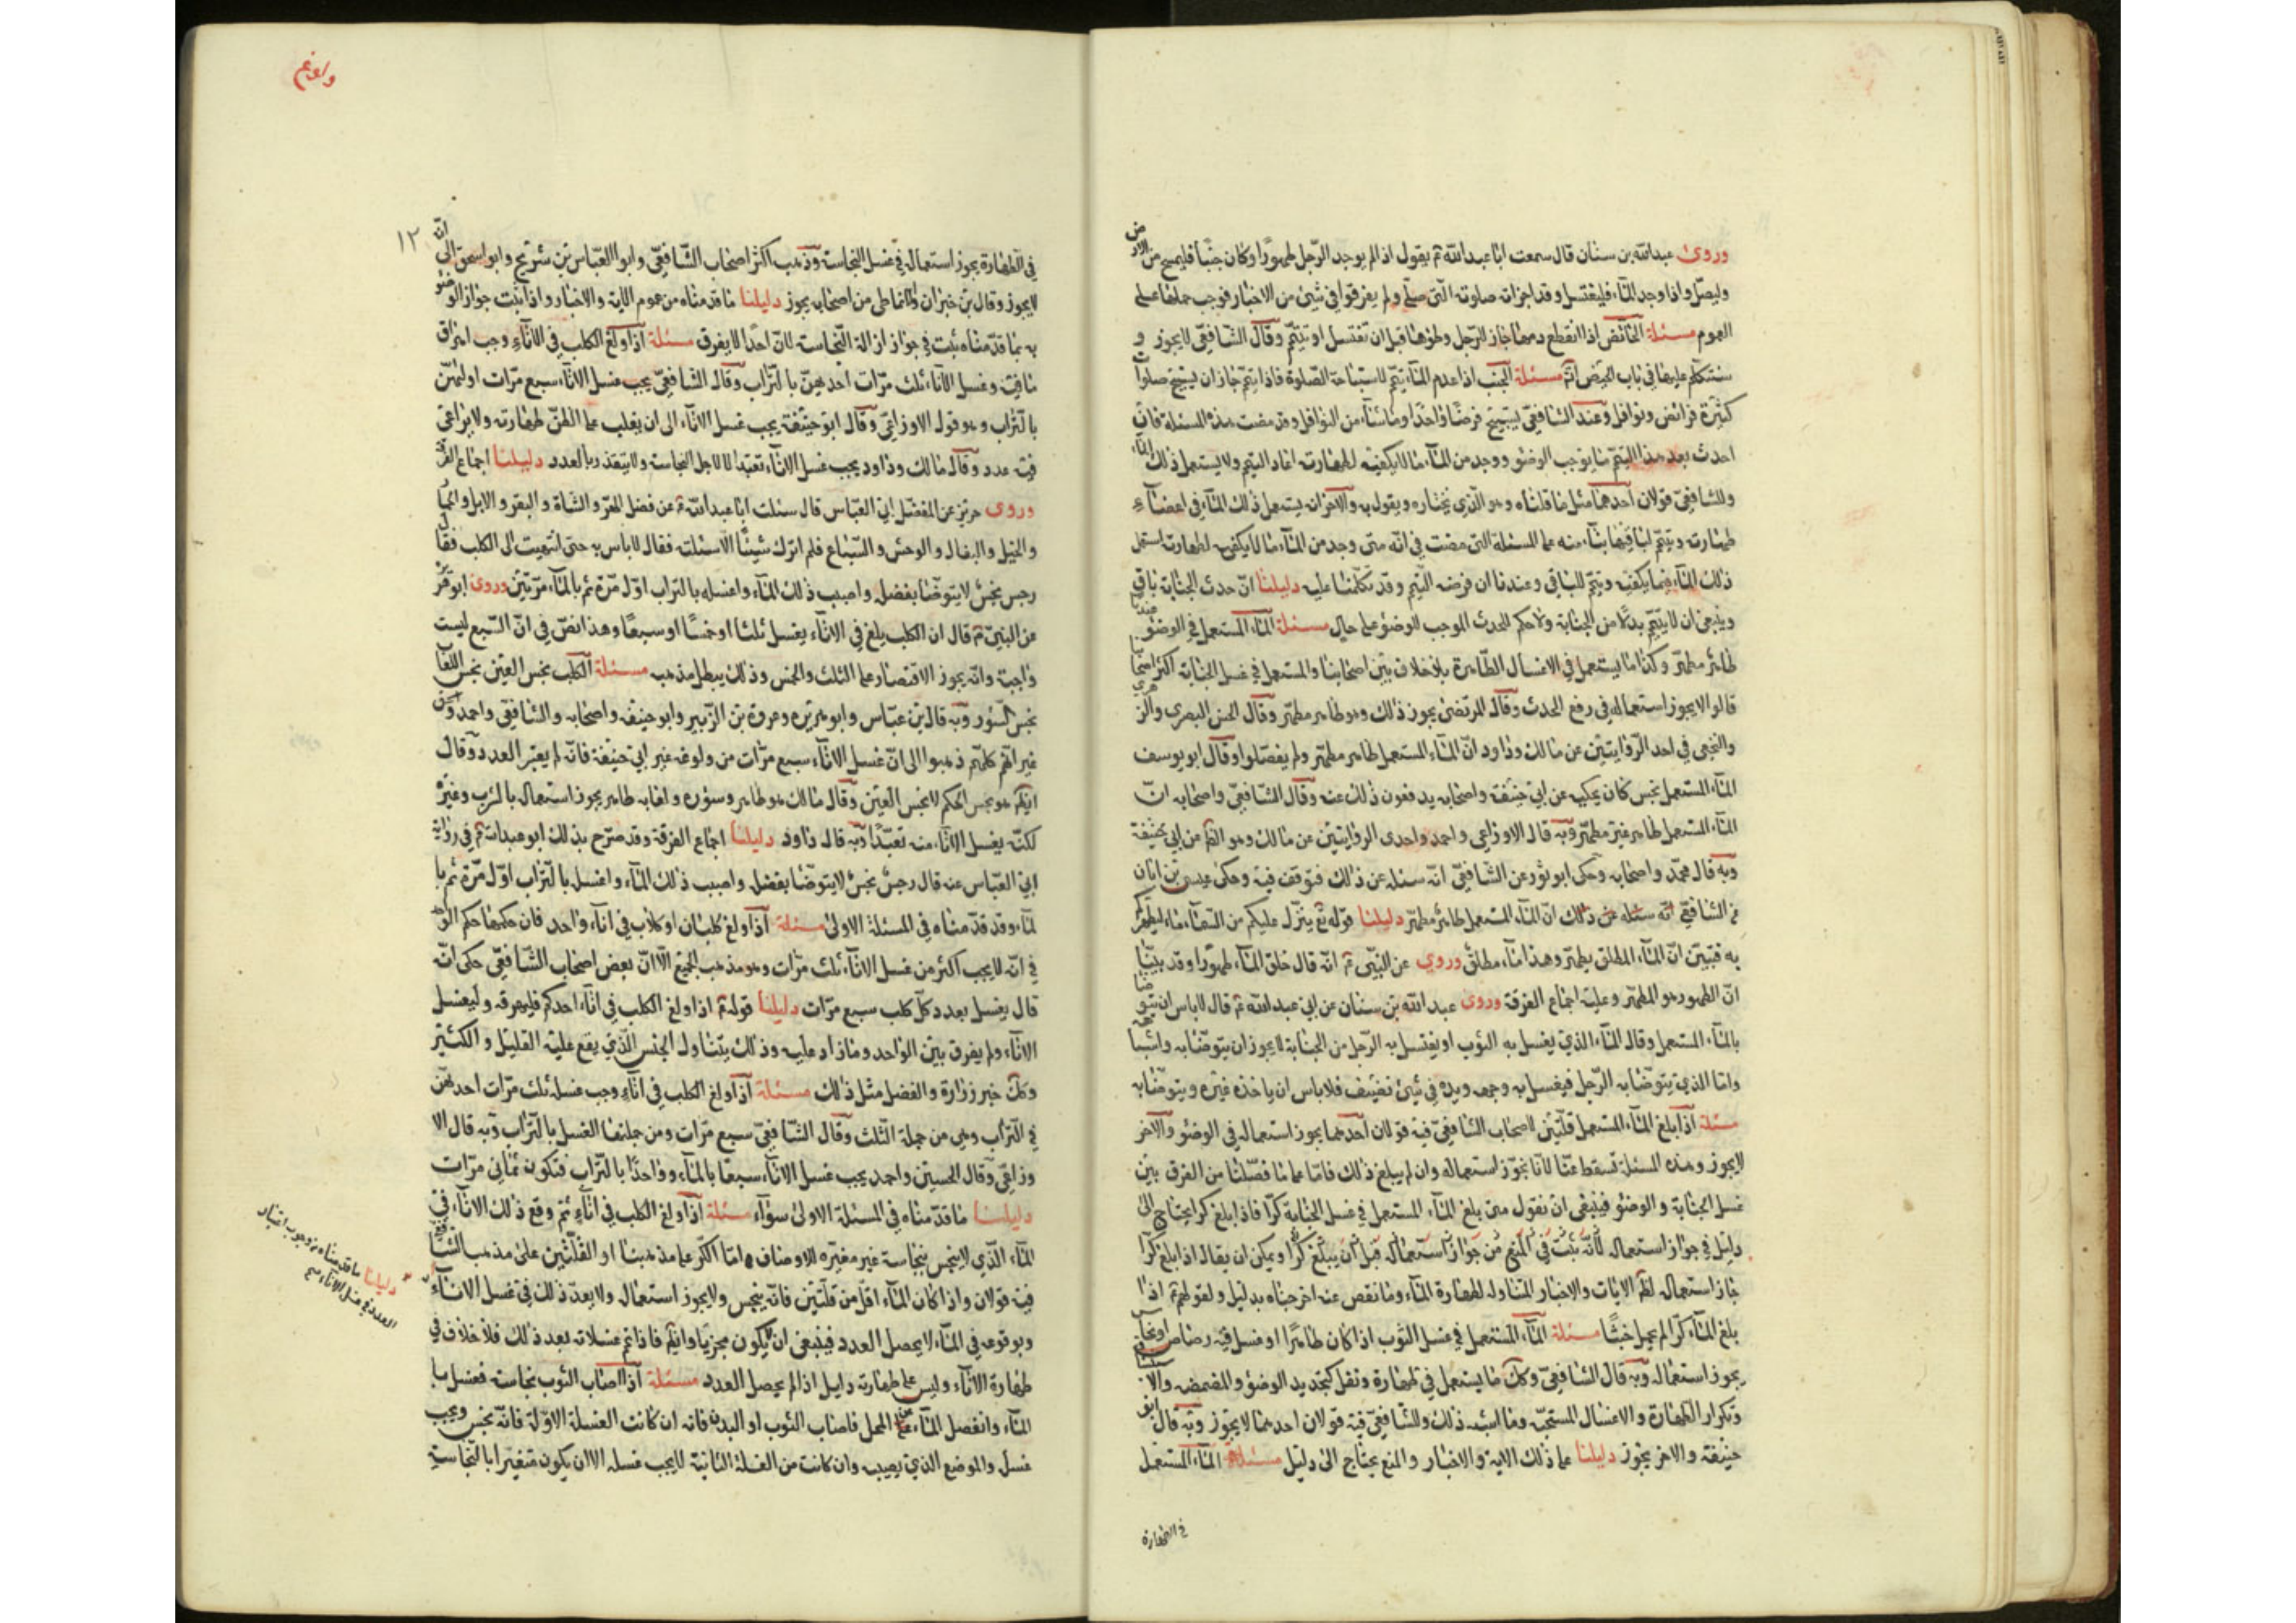 وروى عبدالله بن سنان قال سمعت ابا عبدالله ع يقول اذا لم يوجد الرجل طهورا وكان جنبا فليمسح من الارض
وليصل واذا وجد الماء فليغتسل وقد اجزاته صلوته التي صلى ولم يفرقوا في شيئ من الاخبار فوجب حملها على
العموم مسئلة الحائض اذا انقطع دمها جاز للرجل وطؤها قبل ان تغتسل او تيتم وقال الشافعي لا يجوز و
سنتكلم عليها في باب الحيض مسئلة الجنب اذا عدم الماء تيتم لاستباحة الصلوة فاذا تيتم جاز ان يستبيح صلوات
كثيرة فرائض ونوافل وعند الشافعي يستبيح فرضا واحدا وماشاء من النوافل وقد مضت هذه المسئلة فان
احدث بعد هذا التيتم ما يوجب الوضؤ ووجد من الماء ما لا يكفيه لطهارته اعاد التيتم ولا يستعمل ذلك الماء
وللشافعي قولان احدهما مثل ما قلناه وهو الذي نختاره ويقول به والاخر ان يستعمل ذلك الماء في اعضاء
طهارته وتيتم لما فيما بناء منه على المسئلة التي مضت في انه متى وجد من الماء ما لا يكفيه لطهارته استعمل
ذلك الماء فيما يكفيه وتيتم للباقي وعندنا ان فرضه التيتم وقد تكلمنا عليه دليلنا ان حدث الجنابة باق
وينبغي ان لا يتيتم بدلا من الجنابة ولا حكم للحدث الموجب للوضؤ على حال مسئلة الماء المستعمل في الوضؤ عندنا
طاهر مطهر وكذا ما يستعمل في الاغسال الطاهرة بلا خلاف بين اصحابنا والمستعمل في غسل الجنابة اكثر اصحابنا
قالوا لا يجوز استعماله في رفع الحدث وقال المرتضى يجوز ذلك وهو طاهر مطهر وقال الحسن البصري والزهري
والنخعي في احد الروايتين عن مالك وداود ان الماء المستعمل طاهر مطهر ولم يفصلوا وقال ابو يوسف
الماء المستعمل نجس كان يحكيه عن ابي حنيفة واصحابه يدفعون ذلك عنه وقال الشافعي واصحابه ان
الماء المستعمل طاهر غير مطهر وبه قال الاوزاعي واحمد واحدى الروايتين عن مالك وهو الظ عن ابي حنيفة
وبه قال محمد واصحابه وحكى ابو ثور عن الشافعي انه سئله عن ذلك فتوقف فيه وحكى عيسى بن ابان
عن الشافعي انه سئله عن ذلك ان الماء المستعمل طاهر مطهر دليلنا قوله تع ينزل عليكم من السماء ماء ليطهركم
به فتبين ان الماء المطلق يطهر وهذا ماء مطلق وروي عن النبي ع انه قال خلق الماء طهورا وقد بينا
ان الطهور هو المطهر وعليه اجماع الفرقة وروى عبدالله بن سنان عن ابي عبدالله ع قال لا باس ان يتوضا
بالماء المستعمل وقال الماء الذي يغسل به الثوب او يغتسل به الرجل من الجنابة لا يجوز ان يتوضابه واشباهه
واما الذي يتوضابه الرجل فيغسل به وجهه ويده في شيئ نظيف فلا باس ان ياخذه غيره ويتوضابه
مسئلة اذا بلغ الماء المستعمل قلتين لاصحاب الشافعي فيه قولان احدهما يجوز استعماله في الوضؤ والاخر
لا يجوز وهذه المسئلة تسقط عنا لانا نجوز استعماله وان لم يبلغ ذلك فاما على ما فصلنا من الفرق بين
غسل الجنابة والوضؤ فينبغي ان نقول متى بلغ الماء المستعمل في غسل الجنابة كرا فاذا بلغ كرا يحتاج الى
دليل في جواز استعماله لانه ثبت في المنع من جواز استعماله قبل ان يبلغ كرا ويمكن ان يقال اذا بلغ كرا
جاز استعماله لظ الايات والاخبار المتناوله لطهارة الماء وما نقص عنه اخرجناه بدليل ولقولهم ع اذا
بلغ الماء كرا لم يحمل خبثا مسئلة الماء المستعمل في غسل الثوب اذا كان طاهرا او غسل فيه رصاص او نحاس
يجوز استعماله وبه قال الشافعي وكل ما يستعمل في طهارة ونفل كتجديد الوضؤ والمضمضه والاستنشاق
وتكرار الطهارة والاغسال المستحبه وما اشبه ذلك وللشافعي فيه قولان احدهما لا يجوز وبه قال ابو
حنيفة والاخر يجوز دليلنا على ذلك الاية والاخبار والمنع يحتاج الى دليل مسئلة الماء المستعمل
في الطهارة
١٢
في الطهارة يجوز استعماله في غسل النجاسة وذهب اكثر اصحاب الشافعي وابوا العباس بن شريح وابو اسحق الى انه
لا يجوز وقال بن خيران والانماطي من اصحابه يجوز دليلنا ما قدمناه من عموم الاية والاخبار واذا ثبت جواز الوضؤ
به بما قدمناه ثبت في جواز ازالة النجاسة لان احدا لا يفرق مسئلة اذا ولغ الكلب في الاناء وجب اهراق
ما فيه وغسل الاناء ثلث مرات احدهن بالتراب وقال الشافعي يجب غسل الاناء سبع مرات اولهن
بالتراب وهو قول الاوزاعي وقال ابو حنيفة يجب غسل الاناء الى ان يغلب على الظن طهارته ولا يراعى
فيه عدد وقال مالك وداود يجب غسل الاناء تعبدا لا لاجل النجاسة ولا يتقدر بالعدد دليلنا اجماع الفرقة
وروى حريز عن المفضل ابي العباس قال سئلت ابا عبدالله ع عن فضل الهرة والشاة والبقر والابل والحمار
والخيل والبغال والوحش والسباع فلم اترك شيئا الا سئلته فقال لا باس به حتى انتهيت الى الكلب فقال
رجس نجس لا يتوضا بفضله واصبب ذلك الماء واغسله بالتراب اول مرة ثم بالماء مرتين وروى ابو هريرة
عن النبي ع قال ان الكلب يلغ في الاناء يغسل ثلثا او خمسا او سبعا وهذا نص في ان السبع ليست
واجبة وانه يجوز الاقتصار على الثلث والخمس وذلك يبطل مذهبه مسئلة الكلب نجس العين نجس اللعاب
نجس السؤر وبه قال بن عباس وابو هريره وعروة بن الزبير وابو حنيفه واصحابه والشافعي واحمد واسحق
غير انهم كلهم ذهبوا الى ان غسل الاناء سبع مرات من ولوغه غير ابي حنيفة فانه لم يعتبر العدد وقال
ايضا هو نجس الحكم لا نجس العين وقال مالك هو طاهر وسؤره ولعابه طاهر يجوز استعماله بالشرب وغيره
لكنه يغسل الاناء منه تعبدا وبه قال داود دليلنا اجماع الفرقة وقد صرح بذلك ابو عبدالله ع في رواية
ابي العباس عنه قال رجس نجس لا يتوضا بفضله واصبب ذلك الماء واغسل بالتراب اول مرة ثم با
لماء وقد قدمناه في المسئلة الاولى مسئلة اذا ولغ كلبان او كلاب في اناء واحد فان حكمها حكم الواحد
في انه لا يجب اكثر من غسل الاناء ثلث مرات وهو مذهب الجميع الا ان بعض اصحاب الشافعي حكى انه
قال يغسل بعدد كل كلب سبع مرات دليلنا قوله ع اذا ولغ الكلب في اناء احدكم فليهرقه وليغسل
الاناء ولم يفرق بين الواحد ومازاد عليه وذلك يتناول الجنس الذي يقع عليه القليل والكثير
وكك خبر زرارة والفضل مثل ذلك مسئلة اذا ولغ الكلب في اناء وجب غسله ثلث مرات احدهن
في التراب وهي من جملة الثلث وقال الشافعي سبع مرات ومن جملتها الغسل بالتراب وبه قال الا
وزاعي وقال الحسين واحمد يجب غسل الاناء سبعا بالماء وواحدا بالتراب فتكون ثماني مرات
دليلنا ما قدمناه في المسئلة الاولى سواء مسئلة اذا ولغ الكلب في اناء ثم وقع ذلك الاناء في
الماء الذي لا ينجس بنجاسة غير مغيره للاوصاف اما الكر على مذهبنا او القلتين على مذهب الشافعي
فيه قولان واذا كان الماء اقل من قلتين فانه ينجس ولا يجوز استعماله ولا يعد ذلك في غسل الاناء
وبوقوعه في الماء لا يحصل العدد فينبغي ان لا يكون مجزيا وايض فاذا تم غسلاته بعد ذلك فلا خلاف في
طهارة الاناء وليس على طهارته دليل اذا لم يحصل العدد مسئلة اذا اصاب الثوب نجاسة فغسل با
الماء وانفصل الماء عن المحل فاصاب الثوب او البدن فانه ان كانت الغسلة الاولة فانه نجس ويجب
غسل والموضع الذي يصيبه وان كانت من الغسلة الثانية لا يجب غسله الا ان يكون متغيرا بالنجاسة
دليلنا ما قدمناه من وجوب اعتبار
العدد في غسل الاناء